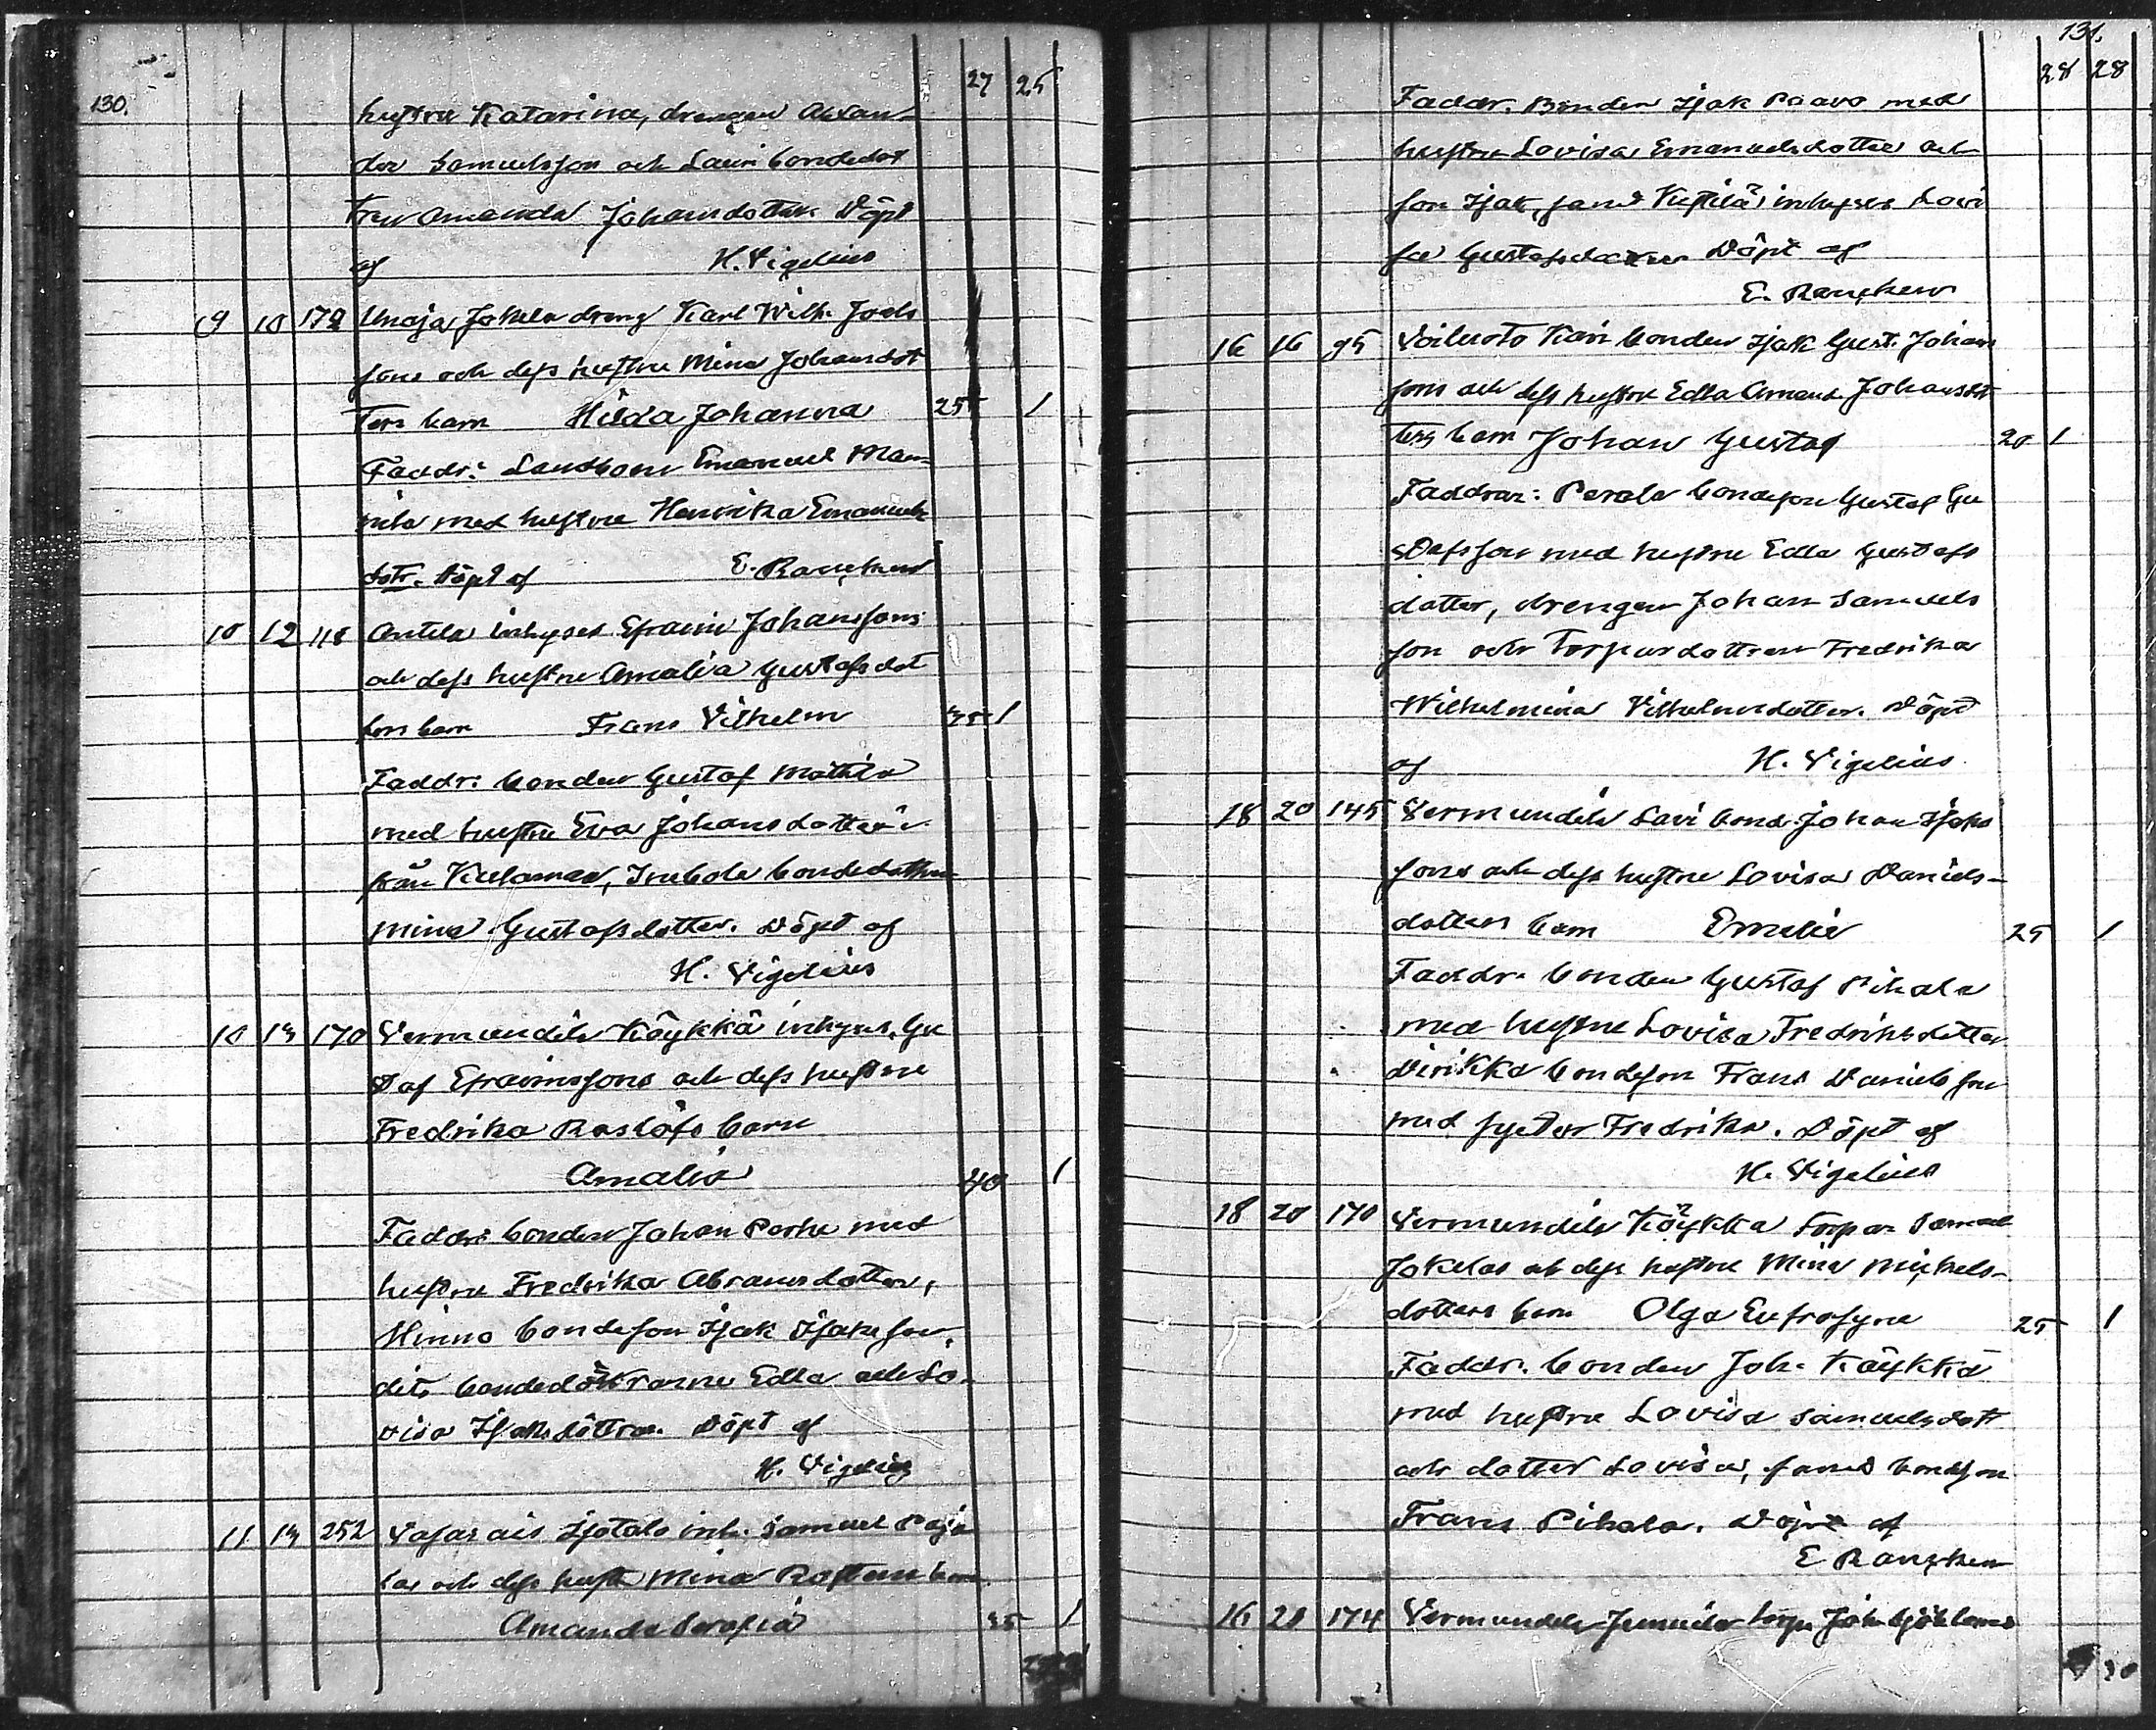 130.
27 25
hustru Katarina, drengen Alexan-
der Samuelsson och Lauri bondedot
tren Amanda Johansdotter. Döpt
af H. Vigelius
9 10 179 Unaja Jakela dreng Karl Wilh. Joels
sons och dess hustru Mina Johansdot
ters barn Hilda Johanna 25 1
Faddr: Landbonn Emanuel Man-
nila med hustru Henrika Emanuels
dotr. Döpt af E. Rancken
10 12 118 Anttila inhyses Efraim Johanssons
och dess hustru Amalia Gustafsdot
ters barn Frans Vilhelm 35 1
Faddr: bonden Gustaf Mattila
med hustru Eva Johansdotter
från Kulamaa, bondedottren
Mina Gustafsdotter. Döpt af
H. Vigelius
10 13 170 Vermundila Köykkä inhyses Gu
staf Efraimssons och dess hustru
Fredrika Roslöfs barn
Amalia 40 1
Faddr: bonden Johan Perho med
hustru Fredrika Abramsdotter,
Hinno bondeson Isak Isaksson,
dito bondedöttrarne Edla och Lo-
visa Isaksdöttrar. Döpt af
H. Vigelius
11 13 252 Vasarais Isotalo inh. Samuel Paja
las och dess hustr Mina Rostens barn
Amanda Serafia 35 1
131.
28 28
Faddr. Bonden Isak Paavo med
hustru Lovisa Emanuelsdotter och
son Isak, samt Kustilä inhyses Lovi
sa Gustafsdotter Döpt af
E. Rancken
16 16 95 Voiluoto Kari bonden Isak Gust. Johans
sons och dess hustru Edla Amand. Johansdot
ters barn Johan Gustaf 20 1
Faddrar: Perala bondeson Gustaf Gu
stafsson med hustru Edla Gustafs
dotter, drengen Johan Samuels
son och Torpardottren Fredrika
Wilhelmina Vilhelmsdotter. Döpt
af H. Vigelius
18 20 145 Vermundila Lavi bond. Johan Isaks
sons och dess hustru Lovisa Daniels-
dotters barn Emelie 25 1
Faddr. bonden Gustaf Pihala
med hustru Lovisa Fredriksdotter
Dirikka bondeson Frans Danielsson
med syster Fredrika. Döpt af
H. Vigelius
18 20 170 Vermundila Köykkä Torpar. Samuel
Jakelas och dess hustru Mina Mickels-
dotters barn Olga Eufrosyne 25 1
Faddr. bonden Joh. Köykkä
med hustru Lovisa Samuelsdottr
och dotter Lovisa, samt bondeson
Frans Pihala. Döpt af
E Rancken
16 20 174 Vermundila Junnila torp. Joh. Sjöbloms
30